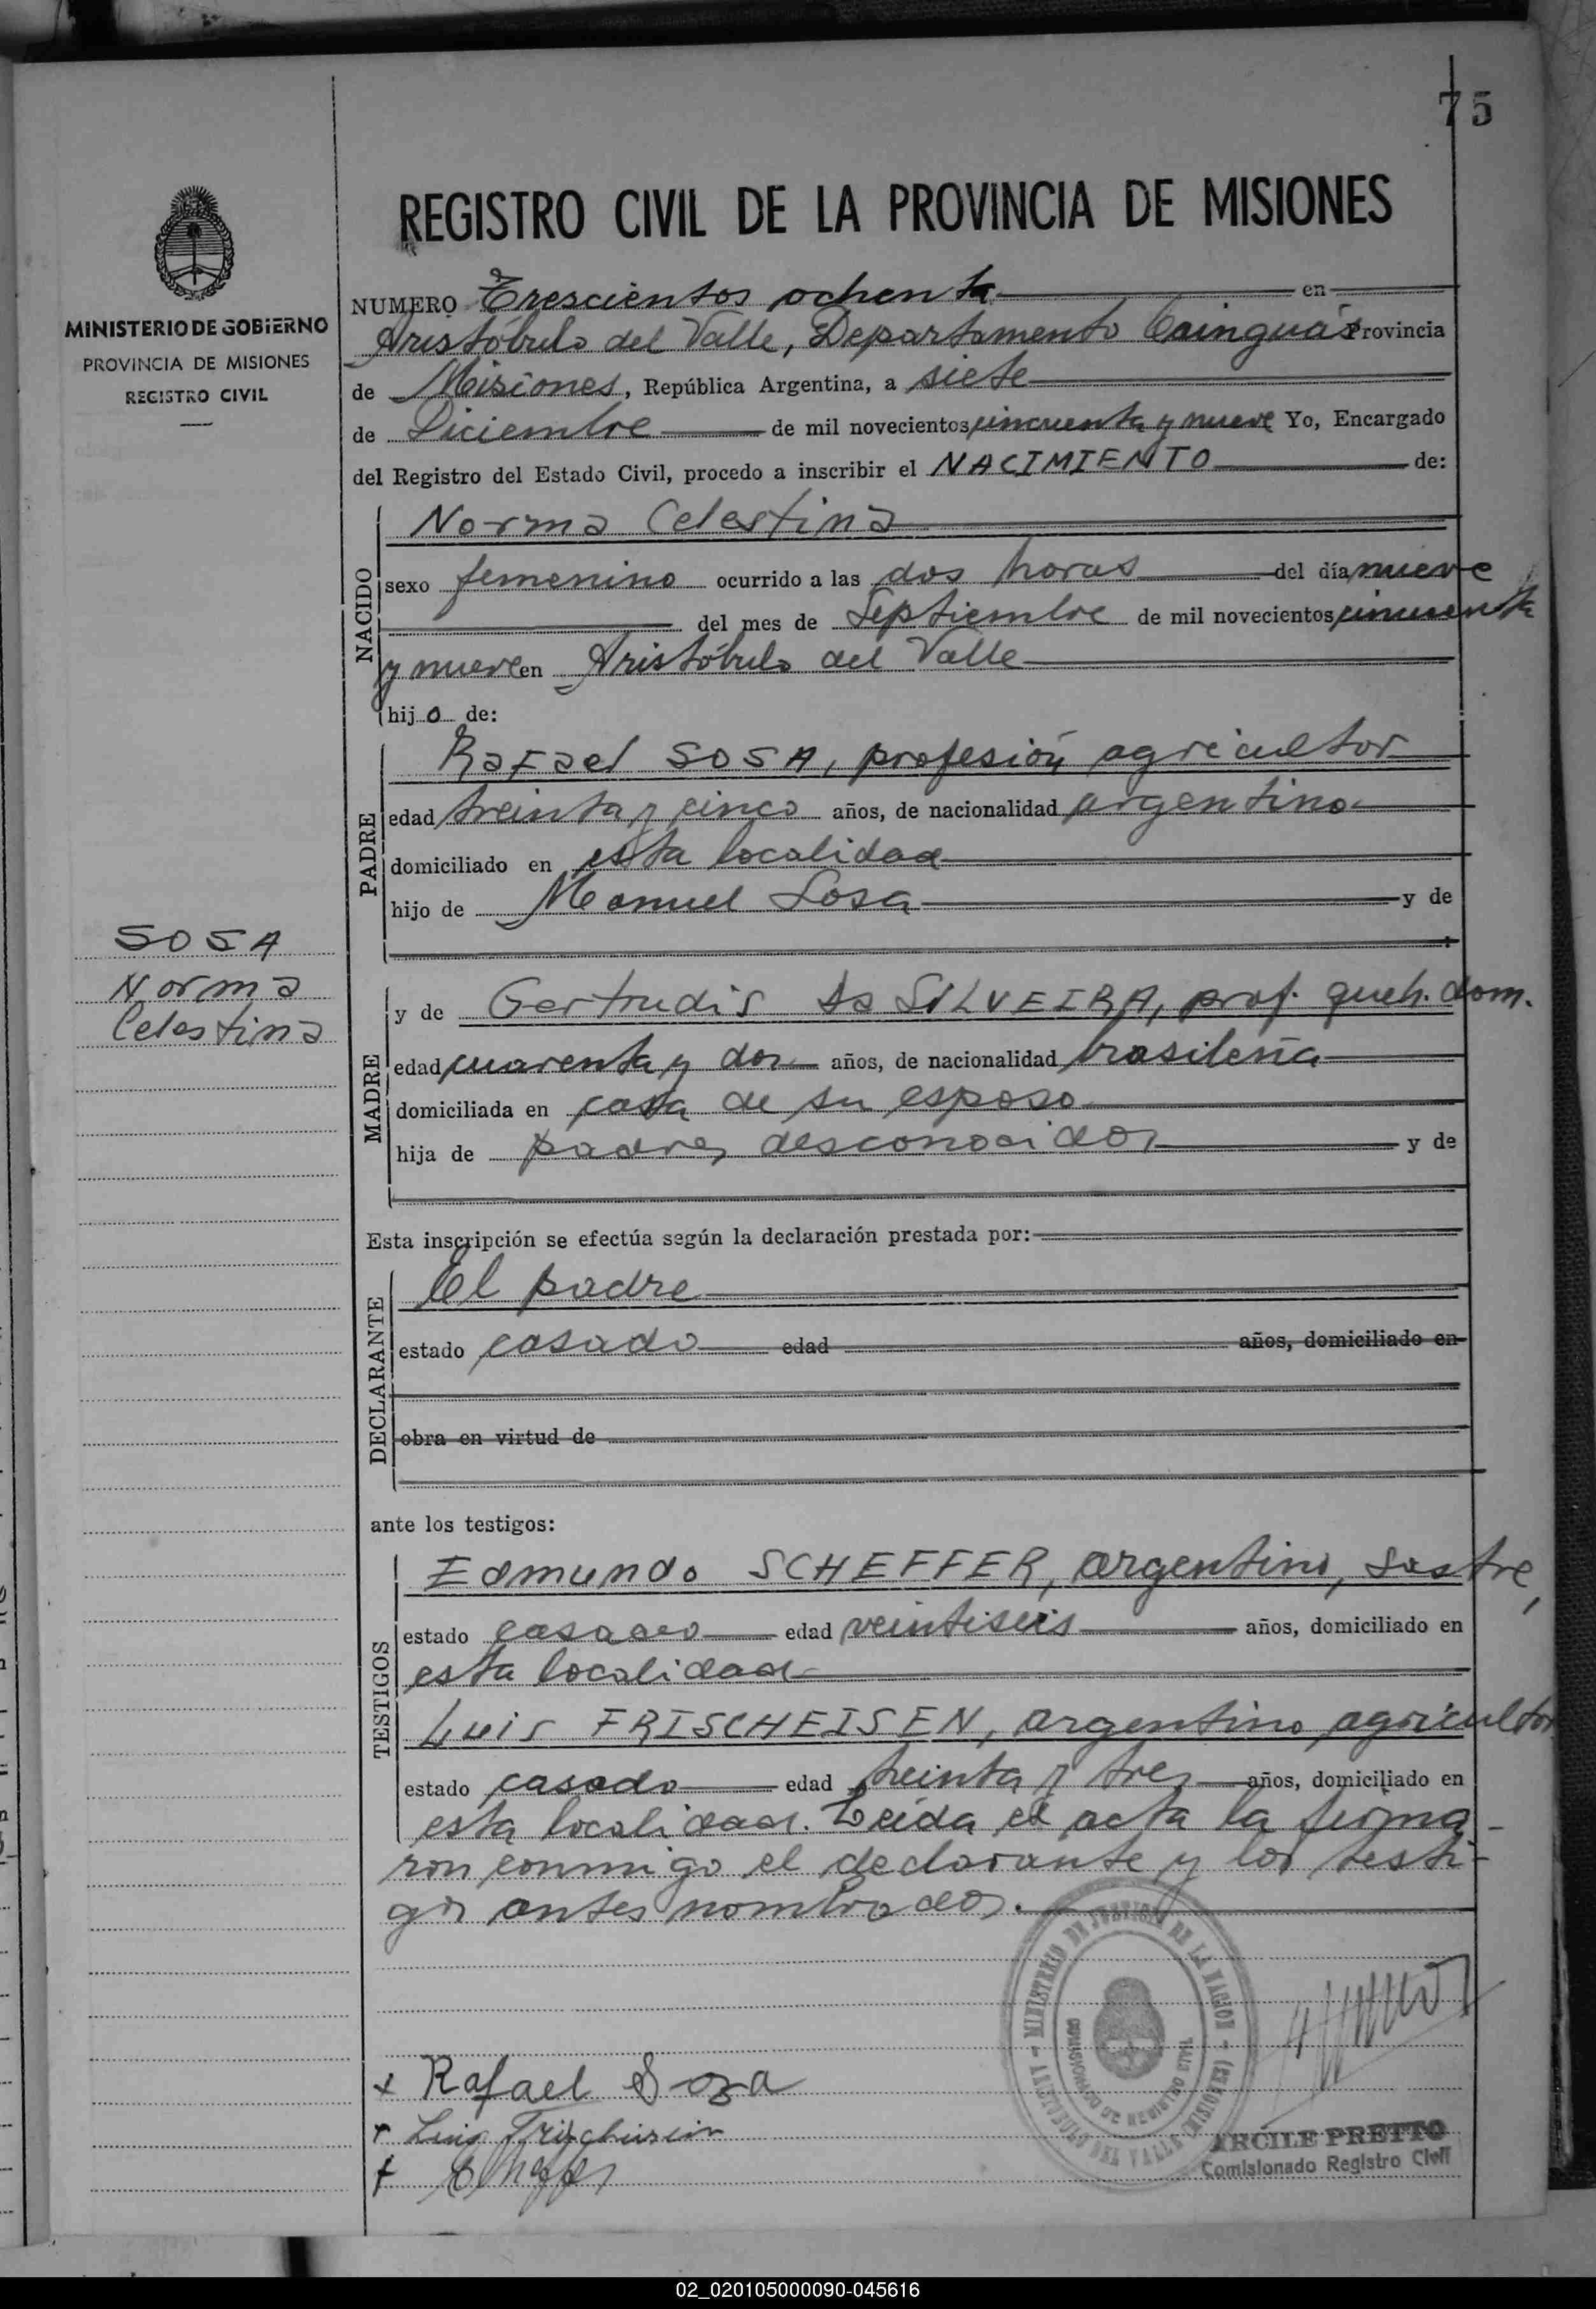 75
REGISTRO CIVIL DE LA PROVINCIA DE MISIONES
MINISTERIO DE GOBIERNO
PROVINCIA DE MISIONES
REGISTRO CIVIL
NUMERO Trescientos ochenta en
Aristóbulo del Valle, Departamento Cainguás Provincia
de Misiones, República Argentina, a siete
de Diciembre de mil novecientos cincuenta y nueve Yo, Encargado
del Registro del Estado Civil, procedo a inscribir el NACIMIENTO de:
NACIDO
Norma Celestina
sexo femenino ocurrido a las dos horas del día nueve
del mes de Septiembre de mil novecientos cincuenta
y nueve en Aristóbulo del Valle
hijo de:
PADRE
Rafael SOSA, profesión agricultor
edad treinta y cinco años, de nacionalidad argentino
domiciliado en esta localidad
hijo de Manuel Sosa y de
SOSA
Norma
Celestina
MADRE
y de Gertrudis da SILVEIRA, prof. queh. dom.
edad cuarenta y dos años, de nacionalidad brasileña
domiciliada en casa de su esposo
hija de padres desconocidos y de
Esta inscripción se efectúa según la declaración prestada por:
DECLARANTE
El padre
estado casado edad años, domiciliado en
obra en virtud de
ante los testigos:
TESTIGOS
Edmundo SCHEFFER, argentino, sastre,
estado casado edad veintiseis años, domiciliado en
esta localidad
Luis FRISCHEISEN, argentino, agricultor
estado casado edad treinta y tres años, domiciliado en
esta localidad. Leída el acta la firma-
ron conmigo el declarante y los testi-
gos antes nombrados.
MINISTERIO DE JUSTICIA DE LA NACION - ARISTOBULO DEL VALLE (MISIONES)
COMISIONADO DE REGISTRO CIVIL
x Rafael Soza
x Luis Frischeisen
x
ARCILE PRETTO
Comisionado Registro Civil
02_020105000090-045616